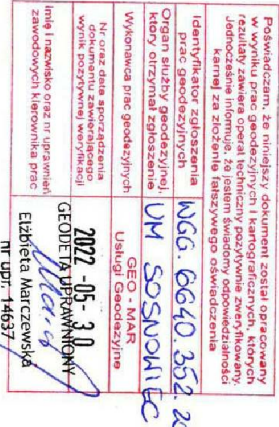 Poświadczam, że niniejszy dokument został opracowany
w wyniku prac geodezyjnych i kartograficznych, których
rezultaty zawiera operat techniczny pozytywnie zweryfikowany.
Jednocześnie informuję, że jestem świadomy odpowiedzialności
karnej za złożenie fałszywego oświadczenia
Identyfikator zgłoszenia
prac geodezyjnych
WGG. 6640. 352. 2
Organ służby geodezyjnej,
który otrzymał zgłoszenie
UM SOSNOWIEC
Wykonawca prac geodezyjnych
GEO - MAR
Usługi Geodezyjne
Nr oraz data sporządzenia
dokumentu zawierającego
wynik pozytywnej weryfikacji
2022 -05- 30
Imię i nazwisko oraz nr uprawnień
zawodowych kierownika prac
GEODETA UPRAWNIONY
Elżbieta Marczewska
nr upr. 14637